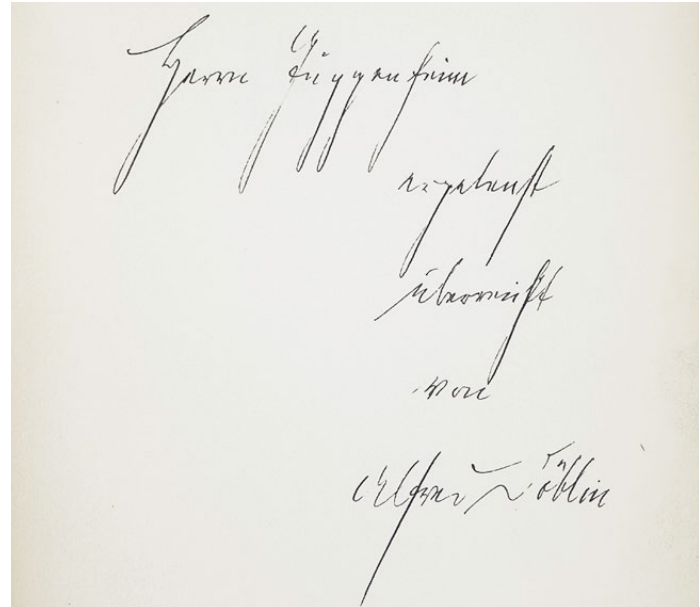 Herrn Guggenheim
ergebenst
überreicht
von
Alfred Döblin